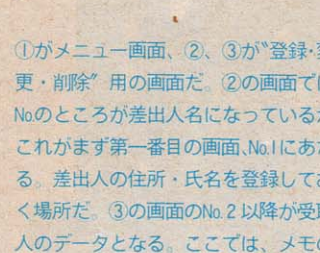 ①がメニュー画面、②、③が〝登録・変
更・削除〟用の画面だ。②の画面では
No.のところが差出人名になっているが
これがまず第一番目の画面、No.1にあた
る。差出人の住所・氏名を登録してお
く場所だ。③の画面のNo.2以降が受取
人のデータとなる。ここでは、メモの